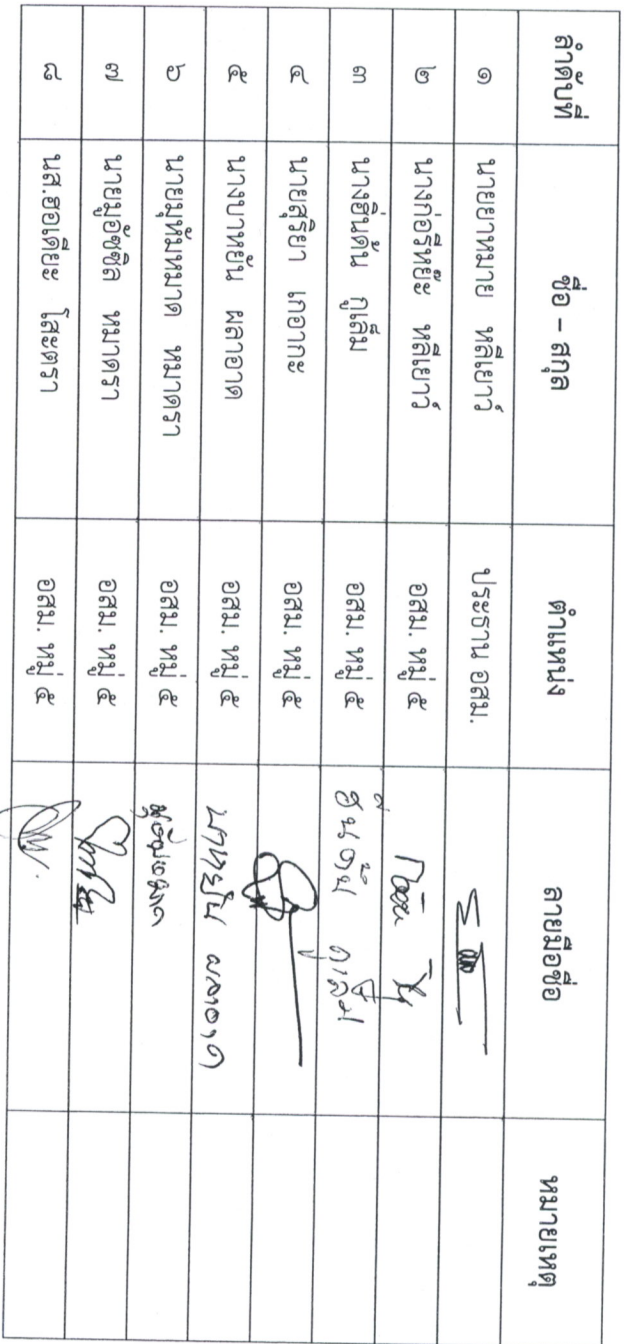 ลำดับที่ ชื่อ – สกุล ตำแหน่ง ลายมือชื่อ หมายเหตุ
๑ นายยาหมาย หลีเยาว์ ประธาน อสม.
๒ นางก่อรีหย๊ะ หลีเยาว์ อสม. หมู่ ๕
๓ นางฮินดัน กูเล็ม อสม. หมู่ ๕
๔ นายสุริยา เกอากะ อสม. หมู่ ๕
๕ นางบาหยัน ผลาอาด อสม. หมู่ ๕ บาหยัน ผลาอาด
๖ นายมูหัมหมาด หมาดรา อสม. หมู่ ๕
๗ นายมูอัซซิล หมาดรา อสม. หมู่ ๕
๘ นส.ฮอเดียะ โสะตรา อสม. หมู่ ๕